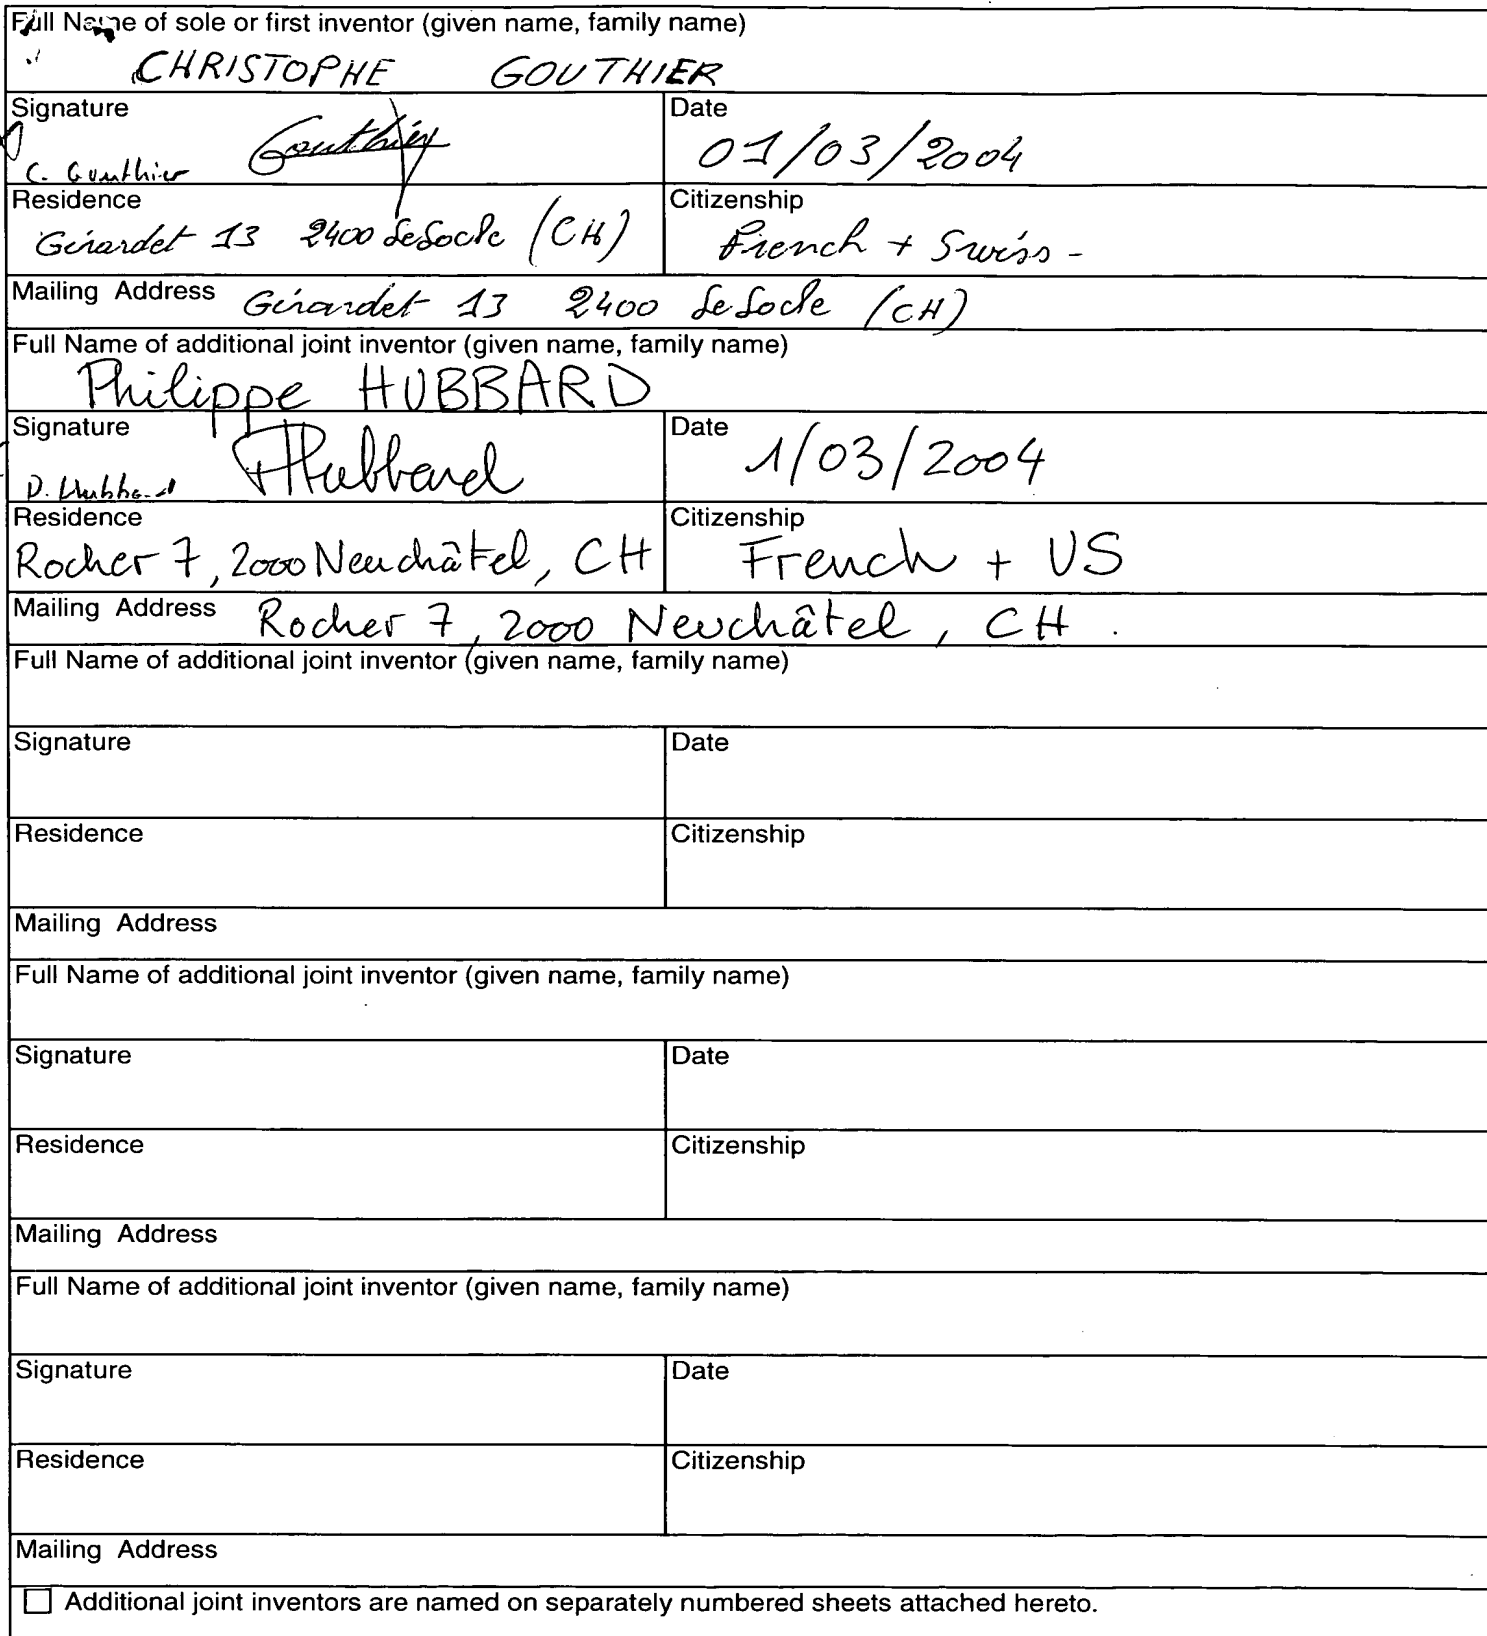 Full Name of sole or first inventor (given name, family name)
CHRISTOPHE GOUTHIER
Signature Date
Gouthier 01/03/2004
C. Gouthier
Residence Citizenship
Girardet 13 2400 Le Locle (CH) French + Swiss -
Mailing Address Girardet 13 2400 Le Locle (CH)
Full Name of additional joint inventor (given name, family name)
Philippe HUBBARD
Signature Date
PHubbard 1/03/2004
P. Hubbard
Residence Citizenship
Rocher 7, 2000 Neuchâtel, CH French + US
Mailing Address Rocher 7, 2000 Neuchâtel, CH.
Full Name of additional joint inventor (given name, family name)
Signature Date
Residence Citizenship
Mailing Address
Full Name of additional joint inventor (given name, family name)
Signature Date
Residence Citizenship
Mailing Address
Full Name of additional joint inventor (given name, family name)
Signature Date
Residence Citizenship
Mailing Address
Additional joint inventors are named on separately numbered sheets attached hereto.